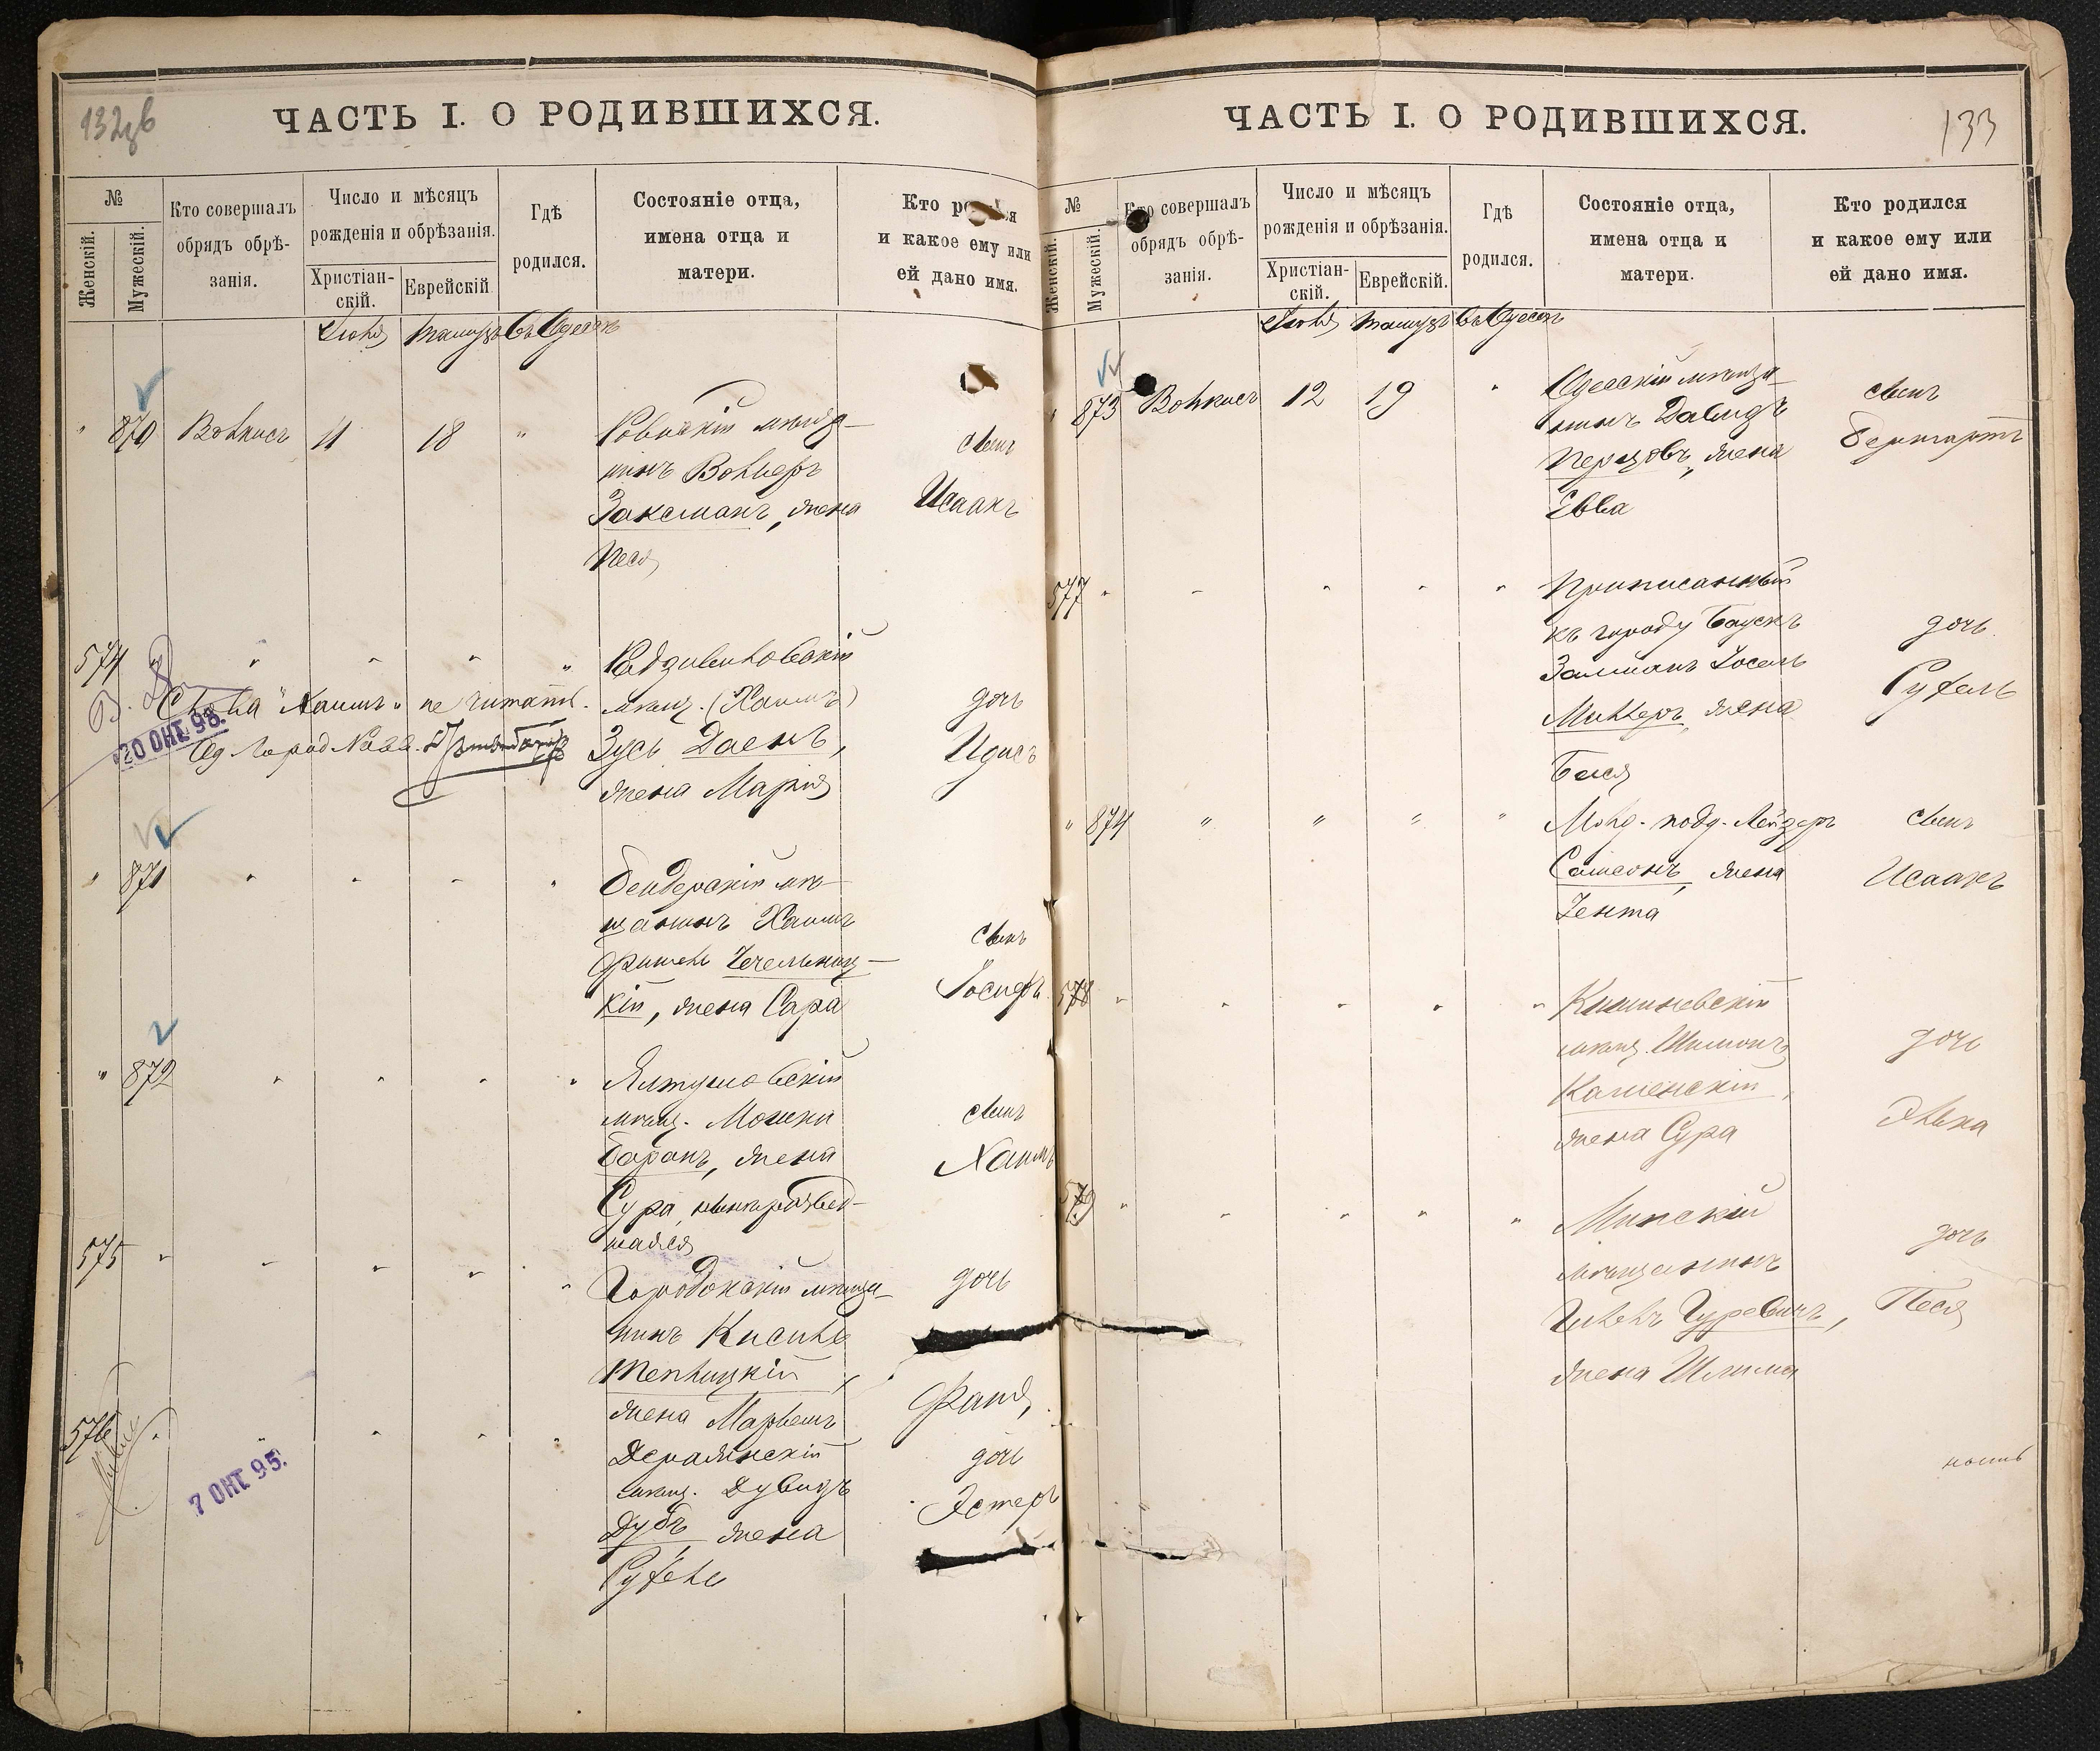 132об
ЧАСТЬ I. О РОДИВШИХСЯ.
№
Женскій.
Мужескій.
Кто совершалъ
обрядъ обрѣ-
занія.
Число и мѣсяцъ
рожденія и обрѣзанія.
Христіан-
скій.
Еврейскій
Гдѣ
родился.
Состояніе отца,
имена отца и
матери.
Кто
и какое ему или
ей дано имя.
Іюля Тамузъ въ Одессѣ
" 870 Волькисъ 11 18 " Ровнскій мѣща-
нинъ Вольферъ
Заксманъ, жена
Песя
сынъ
Исаакъ
574 " " " " Радзивиловскій
мѣщ. (Хаимъ)
Зусь Даенъ,
жена Марія
дочь
Идисъ
Слова "Хаимъ" не читать.
20 ОКТ. 98.
Од. Город. Равв.
" 871 " " " " Бендерскій мѣ-
щанинъ Хаимъ
Фишель Чечельниц-
кій, жена Сара
сынъ
Іосифъ
" 872 " " " " Ялтушковскій
мѣщ. Мошко
Баранъ, жена
Сура
сынъ
Хаимъ
575 " " " " " Городокскій мѣща-
нинъ Кисиль
Теплицкій,
жена Марьемъ
дочь
Фаня
576 " " " " " Деражнскій
мѣщ. Дувидъ
Дубъ, жена
Рухель
дочь
Эстеръ
7 ОКТ. 95.
133
ЧАСТЬ I. О РОДИВШИХСЯ.
№
Женскій.
Мужескій.
Кто совершалъ
обрядъ обрѣ-
занія.
Число и мѣсяцъ
рожденія и обрѣзанія.
Христіан-
скій.
Еврейскій.
Гдѣ
родился.
Состояніе отца,
имена отца и
матери.
Кто родился
и какое ему или
ей дано имя.
Іюля Тамузъ въ Одессѣ
" 873 Волькисъ 12 19 " Одесскій мѣща-
нинъ Давидъ
Перцовъ, жена
Евва
сынъ
Бернгартъ
577 " " " " " Приписанный
къ городу Баускъ
Залманъ Іосель
Миллеръ, жена
Бася
дочь
Рухель
" 874 " " " " Молд. подд. Лейзеръ
Самсонъ, жена
Іента
сынъ
Исаакъ
578 " " " " " Кишиневскій
мѣщ. Шимонъ
Каменскій,
жена Сура
дочь
Элька
579 " " " " " Минскій
мѣщанинъ
Гилель Гуревичъ,
жена Шлима
дочь
Песя